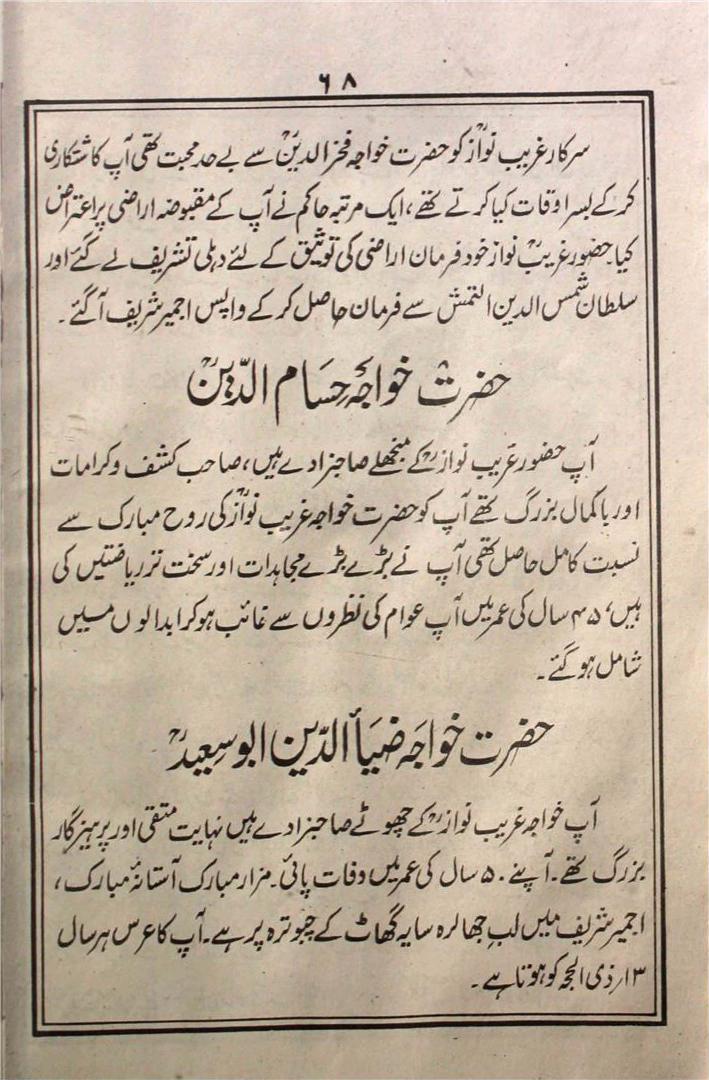 ۶۸
سرکار غریب نوازؒ کو حضرت خواجہ فخرالدینؒ سے بے حد محبت تھی آپ کاشتکاری
کرکے بسر اوقات کیا کرتے تھے، ایک مرتبہ حاکم نے آپ کے مقبوضہ اراضی پر اعتراض
کیا۔ حضور غریب نوازؒ خود فرمان اراضی کی توثیق کے لئے دہلی تشریف لے گئے اور
سلطان شمس الدین التمش سے فرمان حاصل کرکے واپس اجمیر شریف آگئے۔
حضرت خواجہ حسام الدّینؒ
آپ حضور غریب نوازؒ کے منجھلے صاحبزادے ہیں، صاحب کشف و کرامات
اور باکمال بزرگ تھے آپ کو حضرت خواجہ غریب نوازؒ کی روح مبارک سے
نسبت کامل حاصل تھی آپ نے بڑے بڑے مجاہدات اور سخت تر ریاضتیں کی
ہیں، ۴۵ سال کی عمر میں آپ عوام کی نظروں سے غائب ہوکر ابدالوں میں
شامل ہوگئے۔
حضرت خواجہ ضیأ الدّین ابو سعیدؒ
آپ خواجہ غریب نوازؒ کے چھوٹے صاحبزادے ہیں نہایت متقی اور پرہیزگار
بزرگ تھے۔ آپنے ۵۰ سال کی عمر میں وفات پائی۔ مزار مبارک آستانۂ مبارک،
اجمیر شریف میں لب جھالرہ سایہ گھاٹ کے چبوترہ پر ہے۔ آپ کا عرس ہر سال
۱۳؍ ذی الحجہ کو ہوتا ہے۔